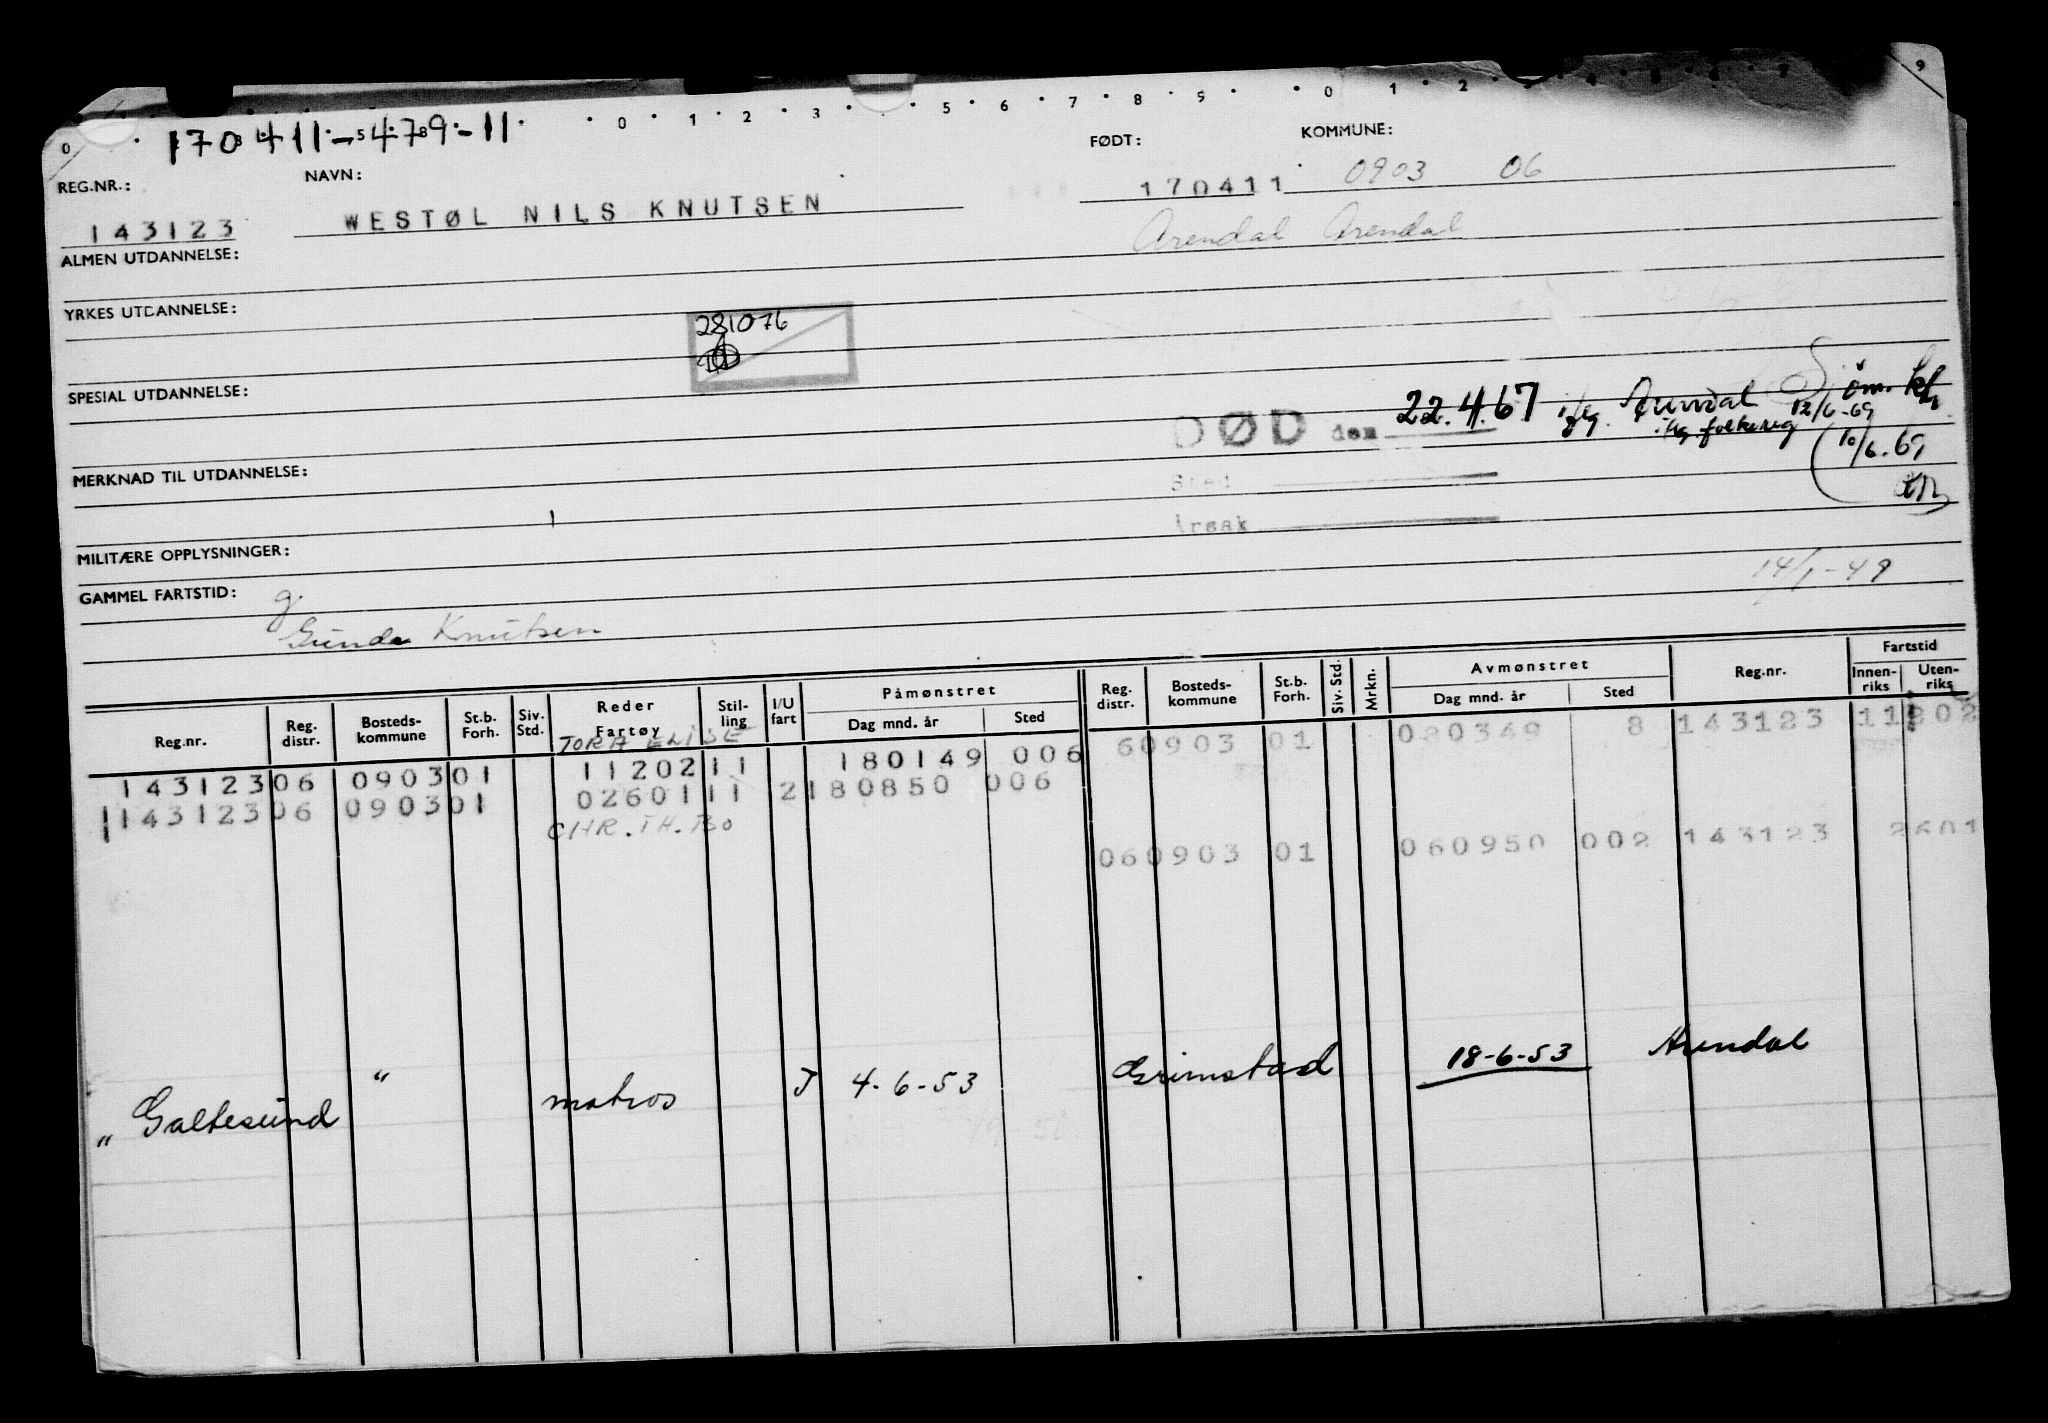 0 1 2 3 5 6 7 8 9 0 1 2 9
170411-479-11
REG.NR.: NAVN: FØDT: KOMMUNE:
143123 WESTØL NILS KNUTSEN 170411 0903 06
Arendal Arendal
ALMEN UTDANNELSE:
YRKES UTDANNELSE:
281076
SPESIAL UTDANNELSE:
DØD den 22.4.67 Arendal Sjöm. ktr
12/6-69
folkereg
10/6.69
MERKNAD TIL UTDANNELSE:
Sted
Årsak
MILITÆRE OPPLYSNINGER:
GAMMEL FARTSTID: g.
14/1-49
Gunda Knutsen
Reg.nr. Reg. distr. Bosteds- kommune St.b. Forh. Siv. Std. Reder Fartøy Stil- ling I/U fart Påmønstret Dag mnd. år Sted Reg. distr. Bosteds- kommune St.b. Forh. Siv. Std. Mrkn. Avmønstret Dag mnd. år Sted Reg.nr. Fartstid Innen- riks Uten- riks
TORA ELISE
143123 06 0903 01 11202 11 180149 006 6 0903 01 080349 8 143123
143123 06 0903 01 02601 11 2 180850 006
CHR. TH. BO
06 0903 01 060950 002 143123 2601
" Galtesund " matros J 4-6-53 Grimstad 18-6-53 Arendal